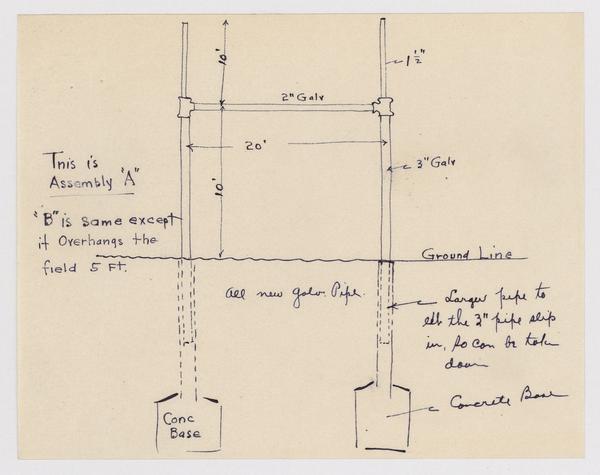 10'
1 1/2"
2" Galv
20'
10'
3" Galv
This is
Assembly "A"
"B" is same except
it Overhangs the
field 5 Ft.
Ground Line
All new galv. Pipe.
Larger pipe to
the 3" pipe slip
in, so can be taken
down
Concrete Base
Conc
Base